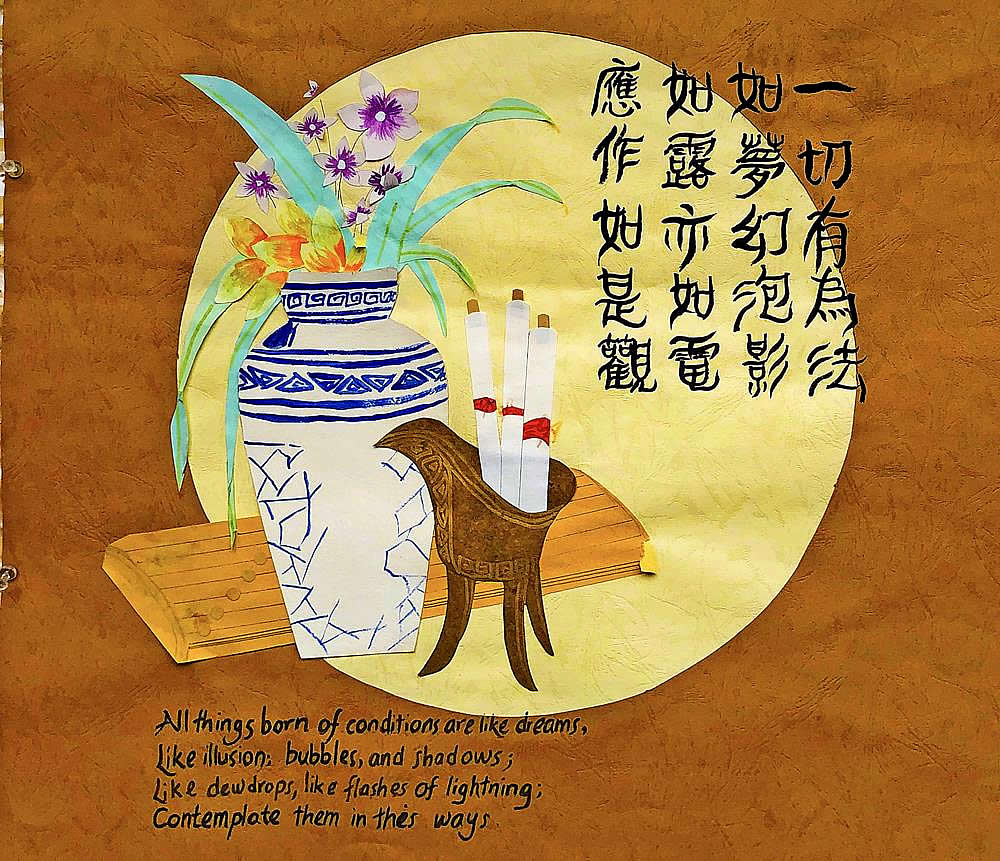 一切有為法
如夢幻泡影
如露亦如電
應作如是觀
All things born of conditions are like dreams,
Like illusion; bubbles, and shadows;
Like dewdrops, like flashes of lightning;
Contemplate them in this ways.